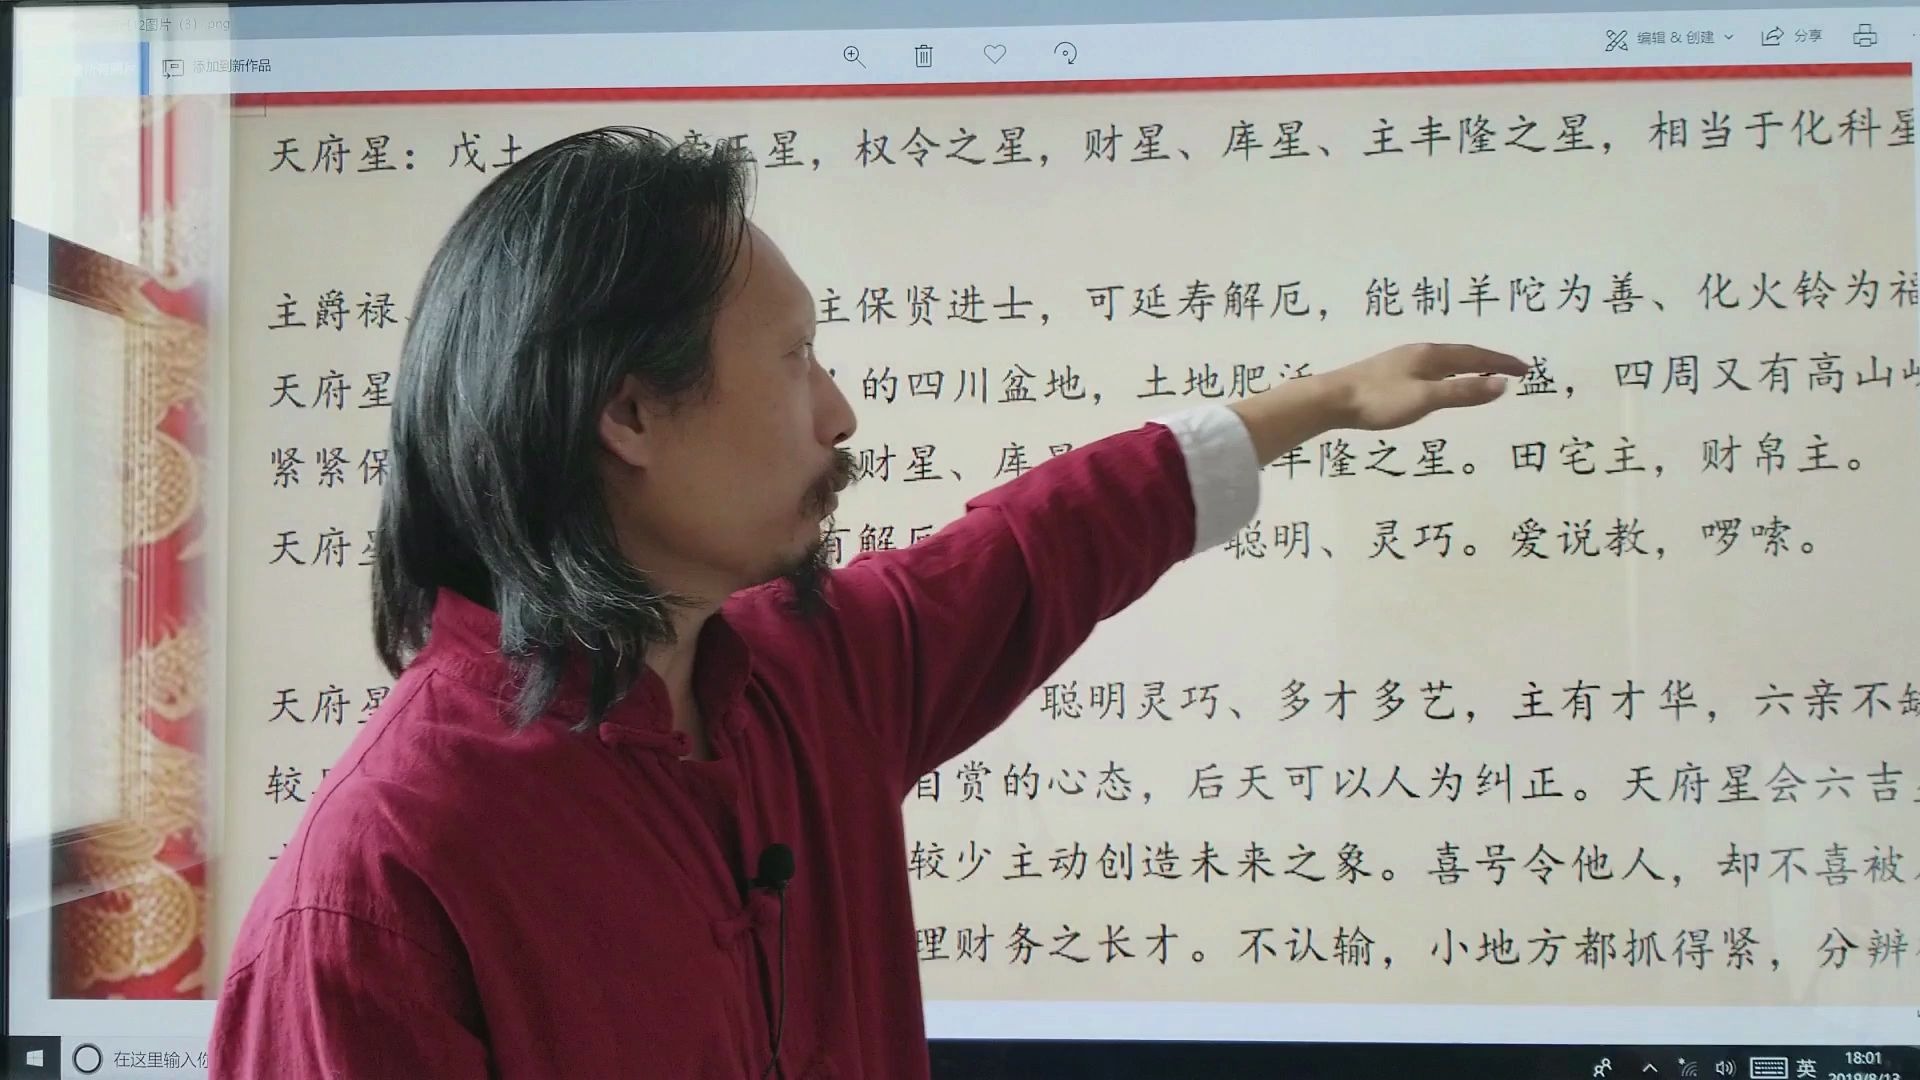 12图片 (3) .png
添加到新作品 编辑 & 创建 分享
天府星：戊土 帝王星，权令之星，财星、库星、主丰隆之星，相当于化科星
主爵禄、 主保贤进士，可延寿解厄，能制羊陀为善、化火铃为福
天府星 的四川盆地，土地肥沃 盛，四周又有高山
紧紧保 财星、库星 丰隆之星。田宅主，财帛主。
天府星 有解厄 聪明、灵巧。爱说教，啰嗦。
天府星 聪明灵巧、多才多艺，主有才华，六亲不缺
较 自赏的心态，后天可以人为纠正。天府星会六吉
较少主动创造未来之象。喜号令他人，却不喜被
理财务之长才。不认输，小地方都抓得紧，分辨
在这里输入你 英 18:01
2019/8/13